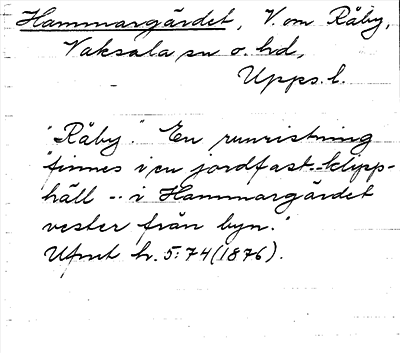 Hammargärdet, V. om Råby,
Vaksala sn o. hd,
Upps. l.
"Råby." En runristning
finnes i en jordfast klipp-
häll -- i Hammargärdet
vester från byn."
Ufmt h. 5:74 (1876).